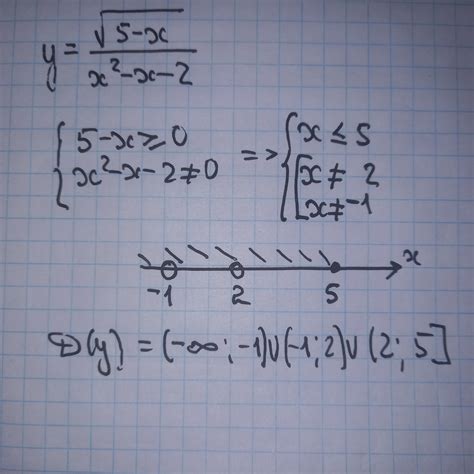 y = √(5-x) / (x²-x-2)
{ 5-x ≥ 0 => { x ≤ 5
{ x²-x-2 ≠ 0 [ x ≠ 2
[ x ≠ -1
-1 2 5 x
D(y) = (-∞; -1)∪(-1; 2)∪(2; 5]